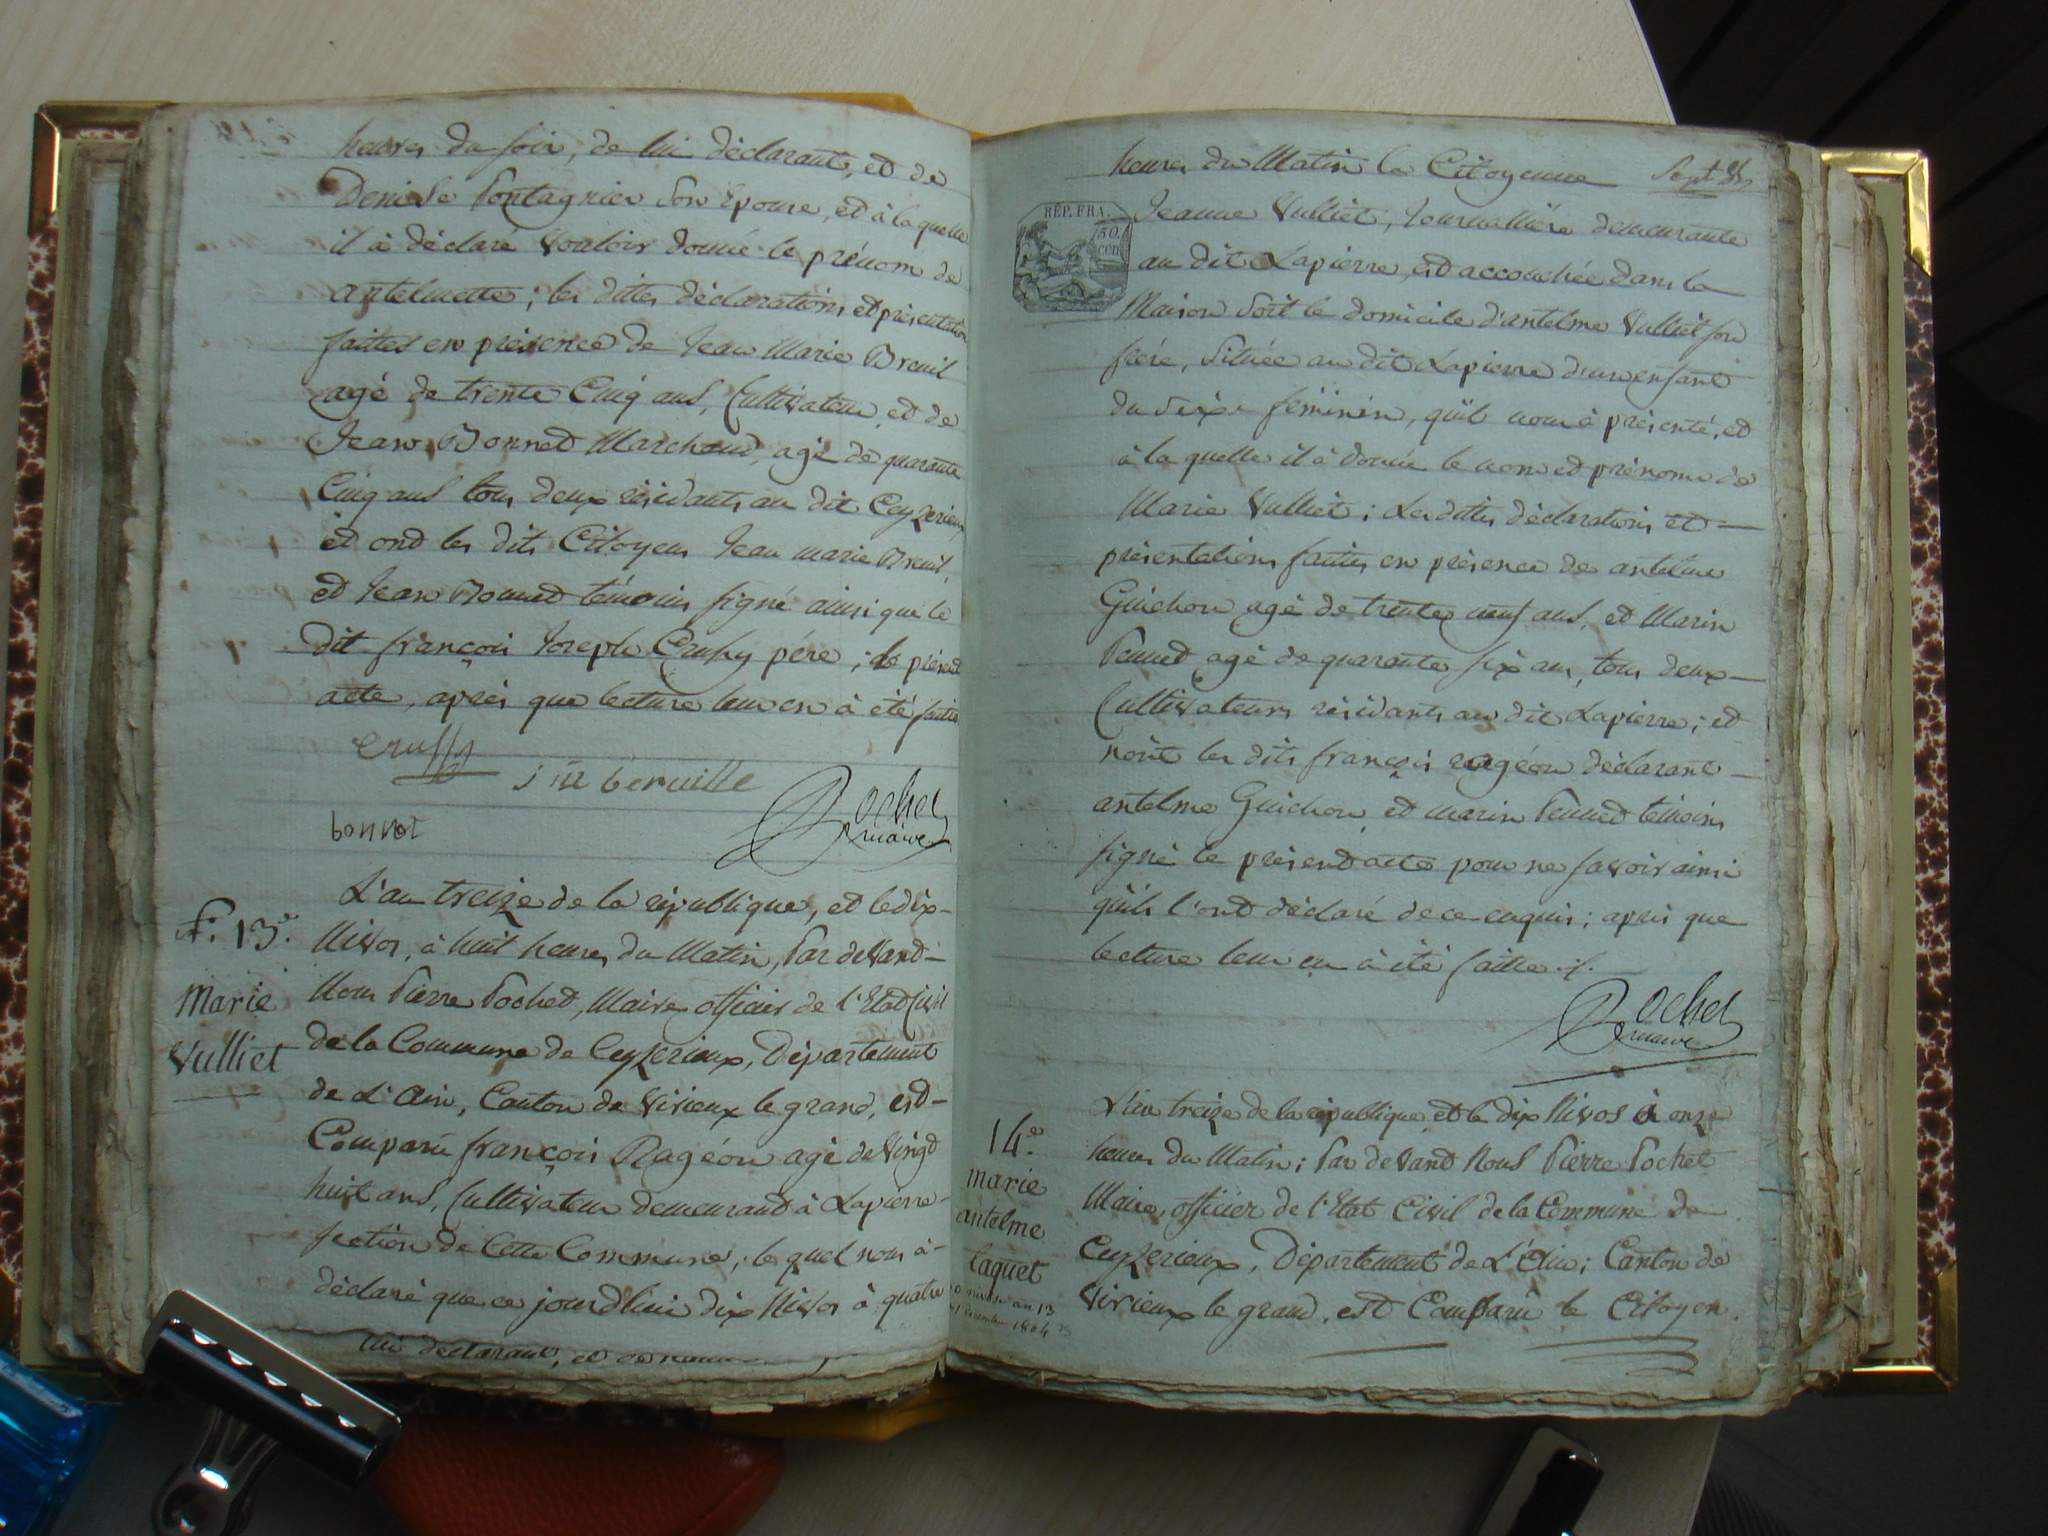 heures du soir, de lui déclarant, et de
Denise Pontagnier Son Epouse, et à la quelle
il à déclaré Vouloir donné le prénom de
antelmette ; les dites déclarations et présentation
faites en présence de Jean Marie Breuil
agé de trente Cinq ans, Cultivateur, et de
Jean Bonned Marchand, agé de quarante
Cinq ans tous deux résidants au dit Ceyzerieux
et ond les dits Citoyens Jean marie Breuil,
et Jean Bonned témoins signé ainsi que le
dit françois Joseph Crussy pére ; le présend
acte, aprés que lecture leur en à été faite
Crussy
bonnet
Rochet
maire
L'an treize de la république, et le dix-
Nivos, à huit heures du Matin, Par devand-
Nous Pierre Pochet, Maire officier de l'Etad Civil
de la Commune de Ceyzerieux, Département
de L'Ain, Canton de Virieux le grand, est-
Comparu françois Ragéon agé de Vingt
huit ans, Cultivateur demeurand à Lapierre-
section de Cette Commune ; le quel nous à-
déclaré que ce jourdhui dix Nivos à quatre
f.: 13.e
Marie
Vulliet
lui déclarant, et de
heures du Matin la Citoyenne
Sept
REP. FRA.
50.
cen
Jeanne Vulliet, Journalliére demeurante
au dit Lapierre, est accouchée dans la
Maison soit le domicile d'antelme Vulliet son
frére, Située au dit Lapierre d'un enfant
du sexe féminin, quïl nous à présenté, et
à la quelle il à donné le nom et prénom de
Marie Vulliet ; Les dites déclarations et
présentations faites en présence de antelme
Guichon agé de trente neuf ans, et Marin
Pennet agé de quarante six ans, tous deux
Cultivateurs résidants au dit Lapierre ; et
nont les dits françois ragéon déclarant
antelme Guichon et marin Pennet témoins
signé le présend acte pour ne savoir ainsi
quïls l'ont déclaré de ce enquis ; aprés que
lecture leur en à été faitte ./.
Rochet
maire
L'an treize de la république et le dix Nivos à onze
heures du Matin ; Par devand Nous Pierre Pochet
Maire, officier de l'Etat Civil de la Commune de
Ceyzerieux, Département de L'Ain ; Canton de
Virieux le grand, est Comparu le Citoyen.
14.e
marie
antelme
Caquet
an 13
1804